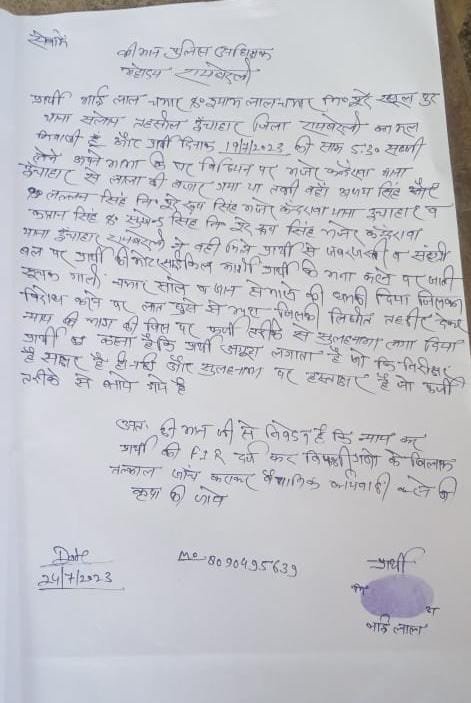 सेवामें
श्रीमान पुलिस अधीक्षक
महोदय रायबरेली
प्रार्थी भाई लाल चमार S/o श्याम लाल चमार नि० पूरे रसूल पुर
थाना सलोन तहसील ऊँचाहार जिला रायबरेली का मूल
निवासी हूँ और प्रार्थी दिनांक 19/7/2023 को साम 5:30 सब्जी
लेने अपने मामा के घर विधिमन पर मजरे कन्दरावा थाना
ऊँचाहार से लाला की बजार गया था तभी वहाँ अभय सिंह और
S/o लल्लन सिंह नि० पूरे रूप सिंह मजरे कंदरावा थाना ऊंचाहार व
कप्तान सिंह S/o सुखेन्द्र सिंह नि० पूरे रूप सिंह मजरे कंदरावा
थाना ऊँचाहार रायबरेली ने वही मिले प्रार्थी से जबरजस्ती व
बल पर प्रार्थी की मोटर साईकिल मांगी प्रार्थी के मना करने पर जाती
सूचक गाली चमार साले व जान से मारने की धमकी दिया जिसका
विरोध करने पर लात घूसे से मारा जिसकी लिखीत तहरीर देकर
न्याय की मांग की जिस पर फर्जी तरीके से सुलहनामा लगा दिया
प्रार्थी का कहना है कि प्रार्थी अंगूठा लगाता है जो कि निरीक्षर
है साक्षर है ही नही और सुलहनामा पर हस्ताक्षर है जो फर्जी
तरीके से
अतः श्री मान जी से निवेदन है कि न्याय कर
प्रार्थी की FIR दर्ज कर विपक्षी गणो के खिलाफ
तत्काल जांच कराकर वैधानिक कार्यवाही करने की
कृपा की जाये
Date
24/7/2023
Mo- 8090495639
प्रार्थी
भाई लाल